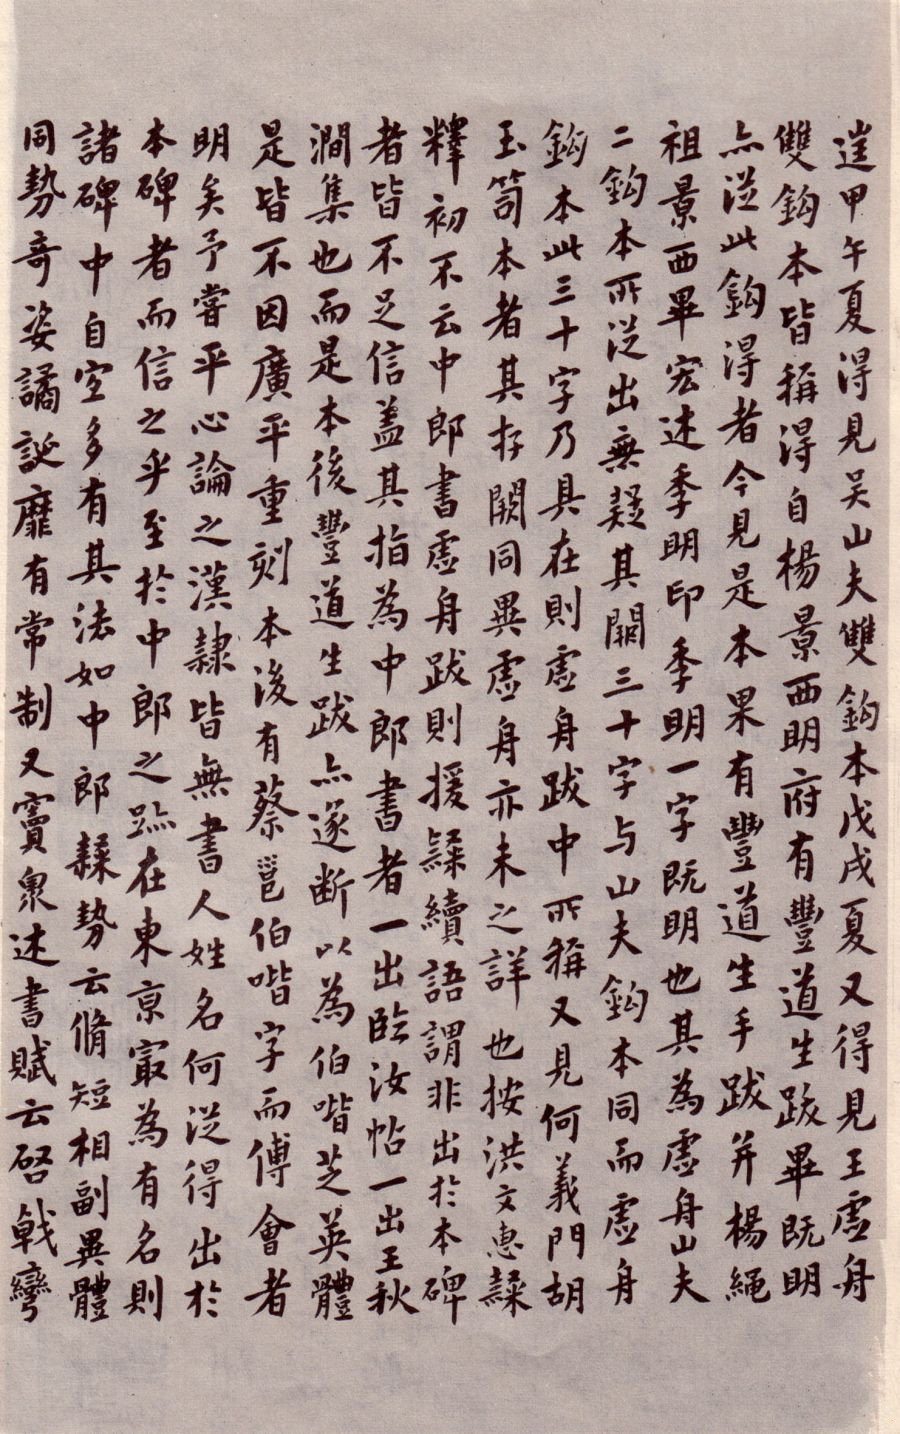 逹甲午夏得見吴山夫雙鈎本戊戌夏又得見王虚舟
雙鈎本皆稱得自楊景西明府有豐道生跋畢既明
亦從此鈎得者今見是本果有豐道生手跋并楊繩
祖景西畢宏述季明印季明一字既明也其為虚舟山夫
二鈎本所從出無疑其闕三十字与山夫鈎本同而虚舟
鈎本此三十字乃具在則虚舟跋中所稱又見何義門胡
玉笥本者其存闕同異虚舟亦未之詳也按洪文惠隸
釋初不云中郎書虚舟跋則援隸續語謂非出於本碑
者皆不足信蓋其指為中郎書者一出臨汝帖一出王秋
澗集也而是本後豐道生跋亦遂断以為伯喈芝英體
是皆不因廣平重刻本後有蔡邕伯喈字而傅會者
明矣予嘗平心論之漢隸皆無書人姓名何從得出於
本碑者而信之乎至於中郎之跡在東京㝡為有名則
諸碑中自宜多有其法如中郎隸勢云脩短相副異體
同勢奇姿譎誕靡有常制又竇臮述書賦云啓戟彎